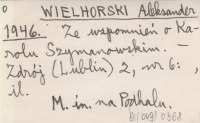 o WIELHORSKI Aleksander
1946. Ze wspomnień o Ka-
rolu Szymanowskim. —
Zdrój (Lublin) 2, nr 6:
il.
M. in. na Podhalu.